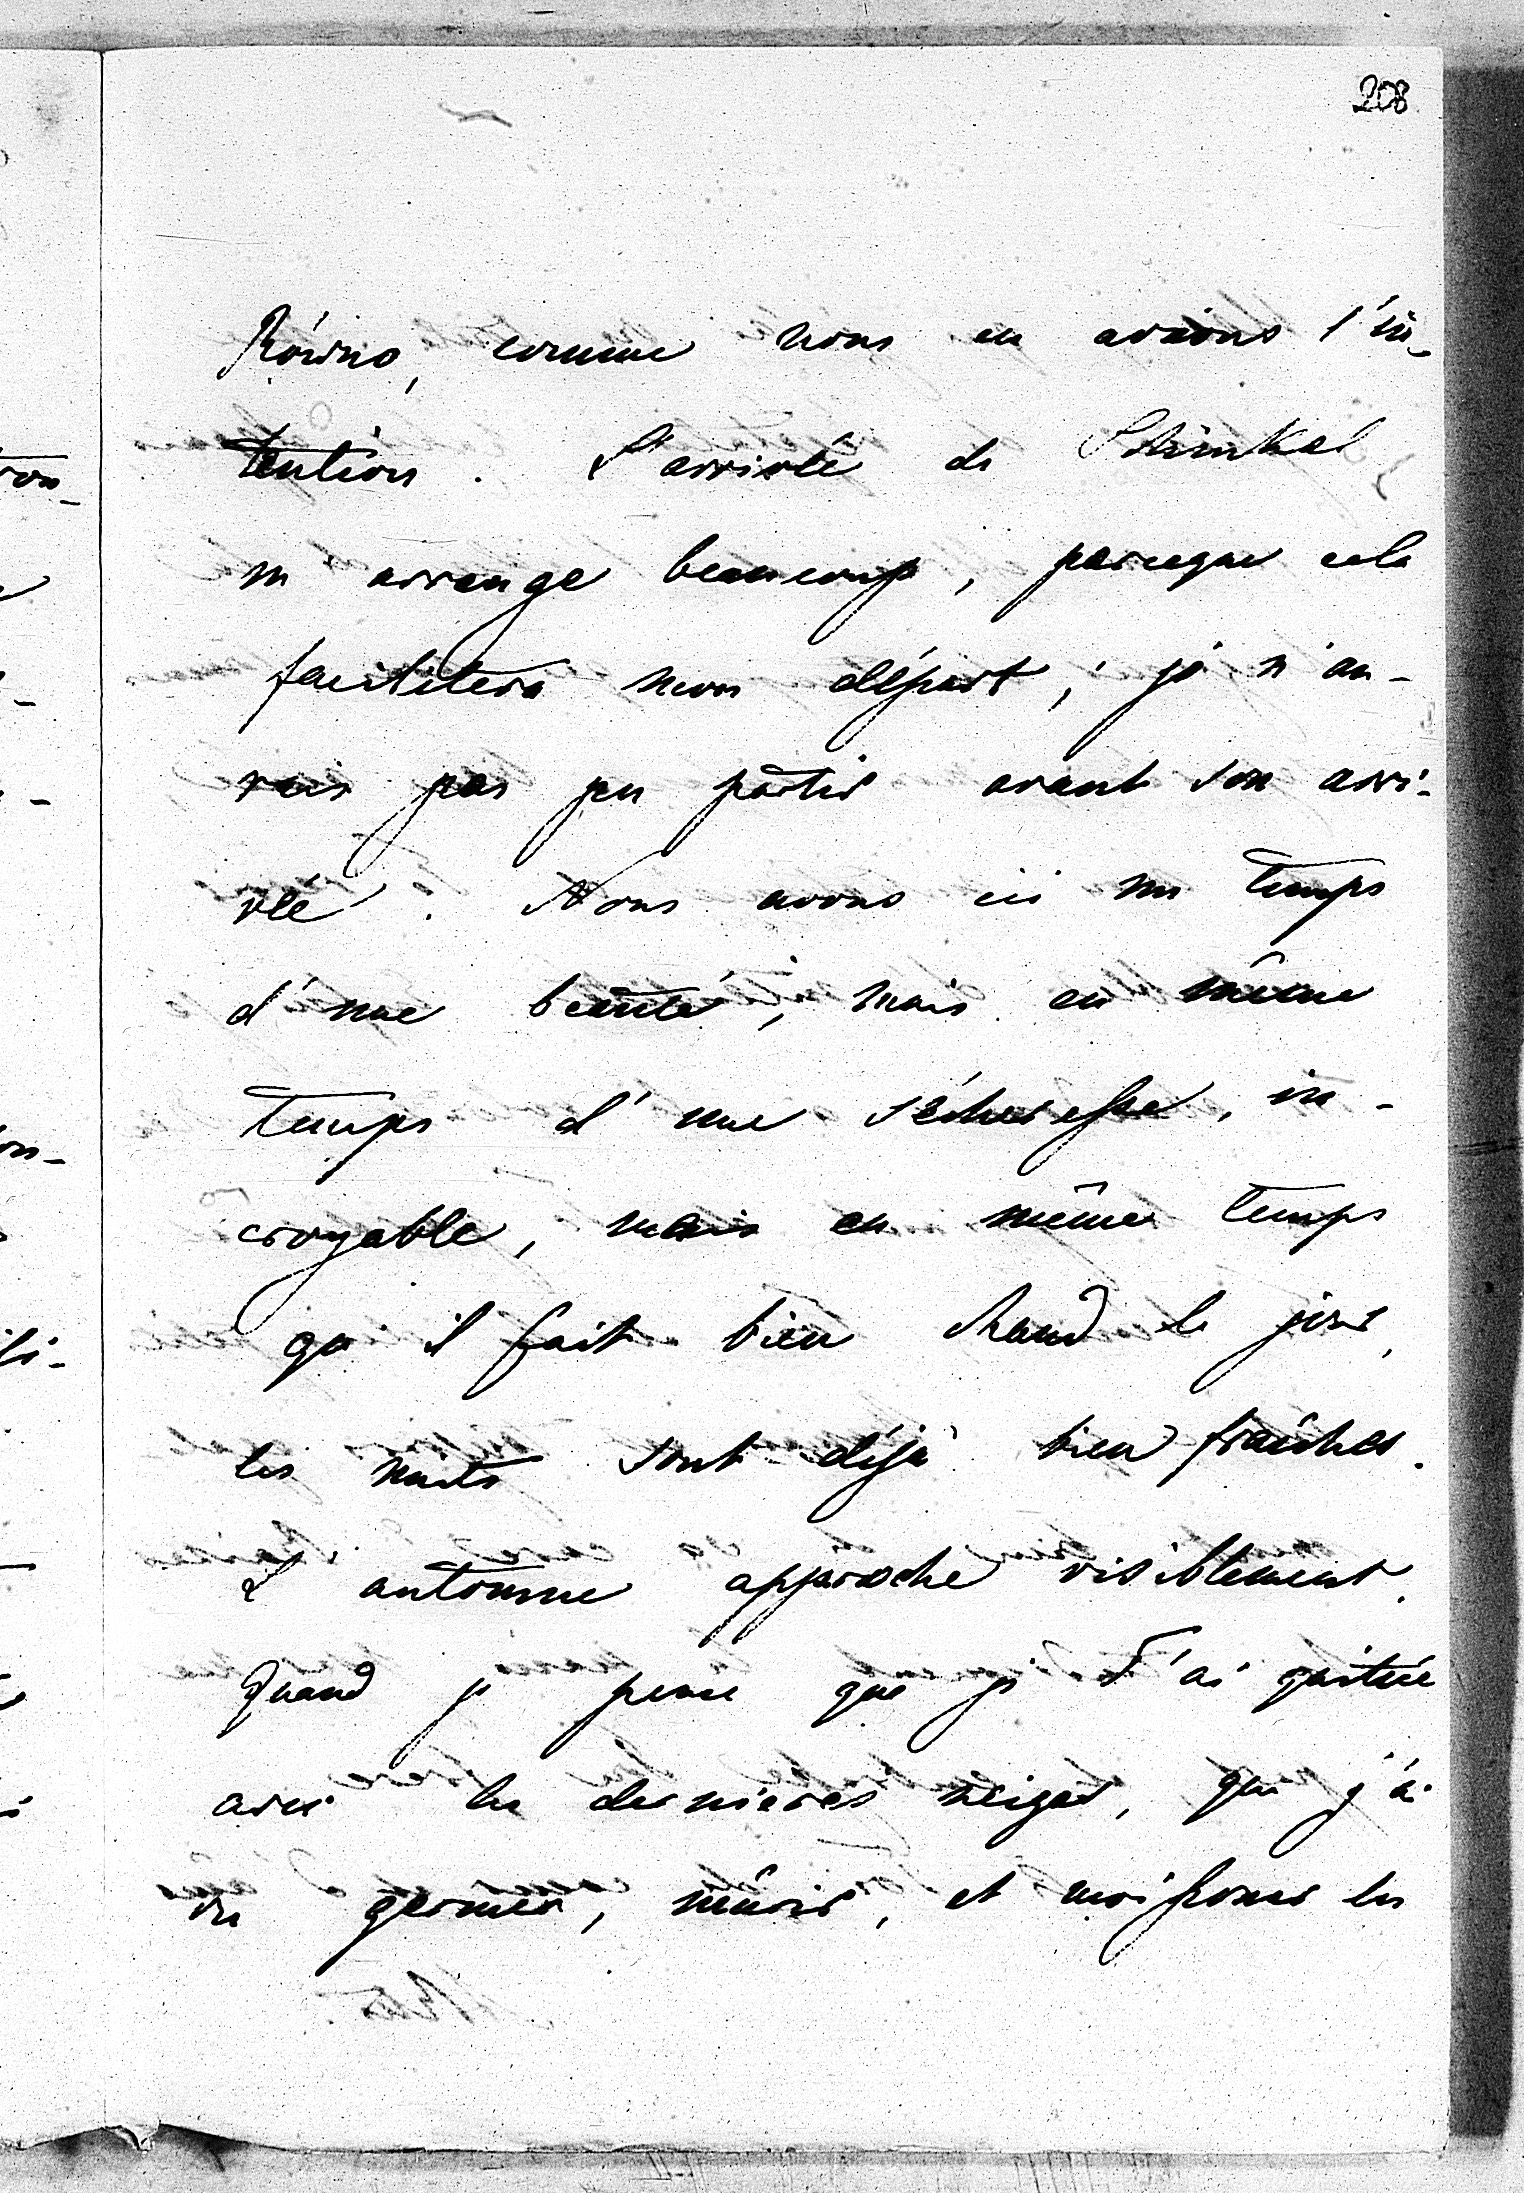 208
Równo, comme nous en avions l'in-
tention. L'arrivée de Stsimkal
m'arrange beaucoup, parceque cela
facilitera mon départ, je n'au-
rais pas pu partir avant son arri-
vée. Nous avons ici un temps
d'une beauté, mais en même
temps d'une sécheresse, in-
croyable, mais en même temps
qu'il fait bien chaud le jour,
les nuits sont déjà bien fraîches.
L'automne approche visiblement.
Quand je pense que je t'ai quittée
avec les dernières neiges, que j'ai
vu germer, mûrir, et moissonner les